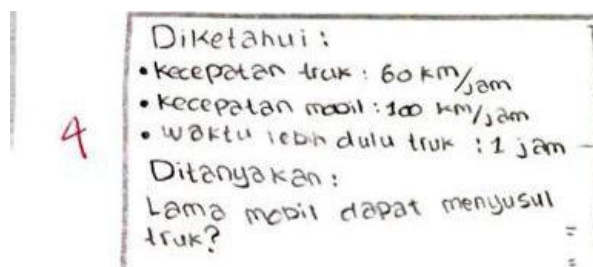 4
Diketahui :
• Kecepatan truk : 60 km/jam
• Kecepatan mobil : 100 km/jam
• Waktu lebih dulu truk : 1 jam
Ditanyakan :
Lama mobil dapat menyusul
truk?